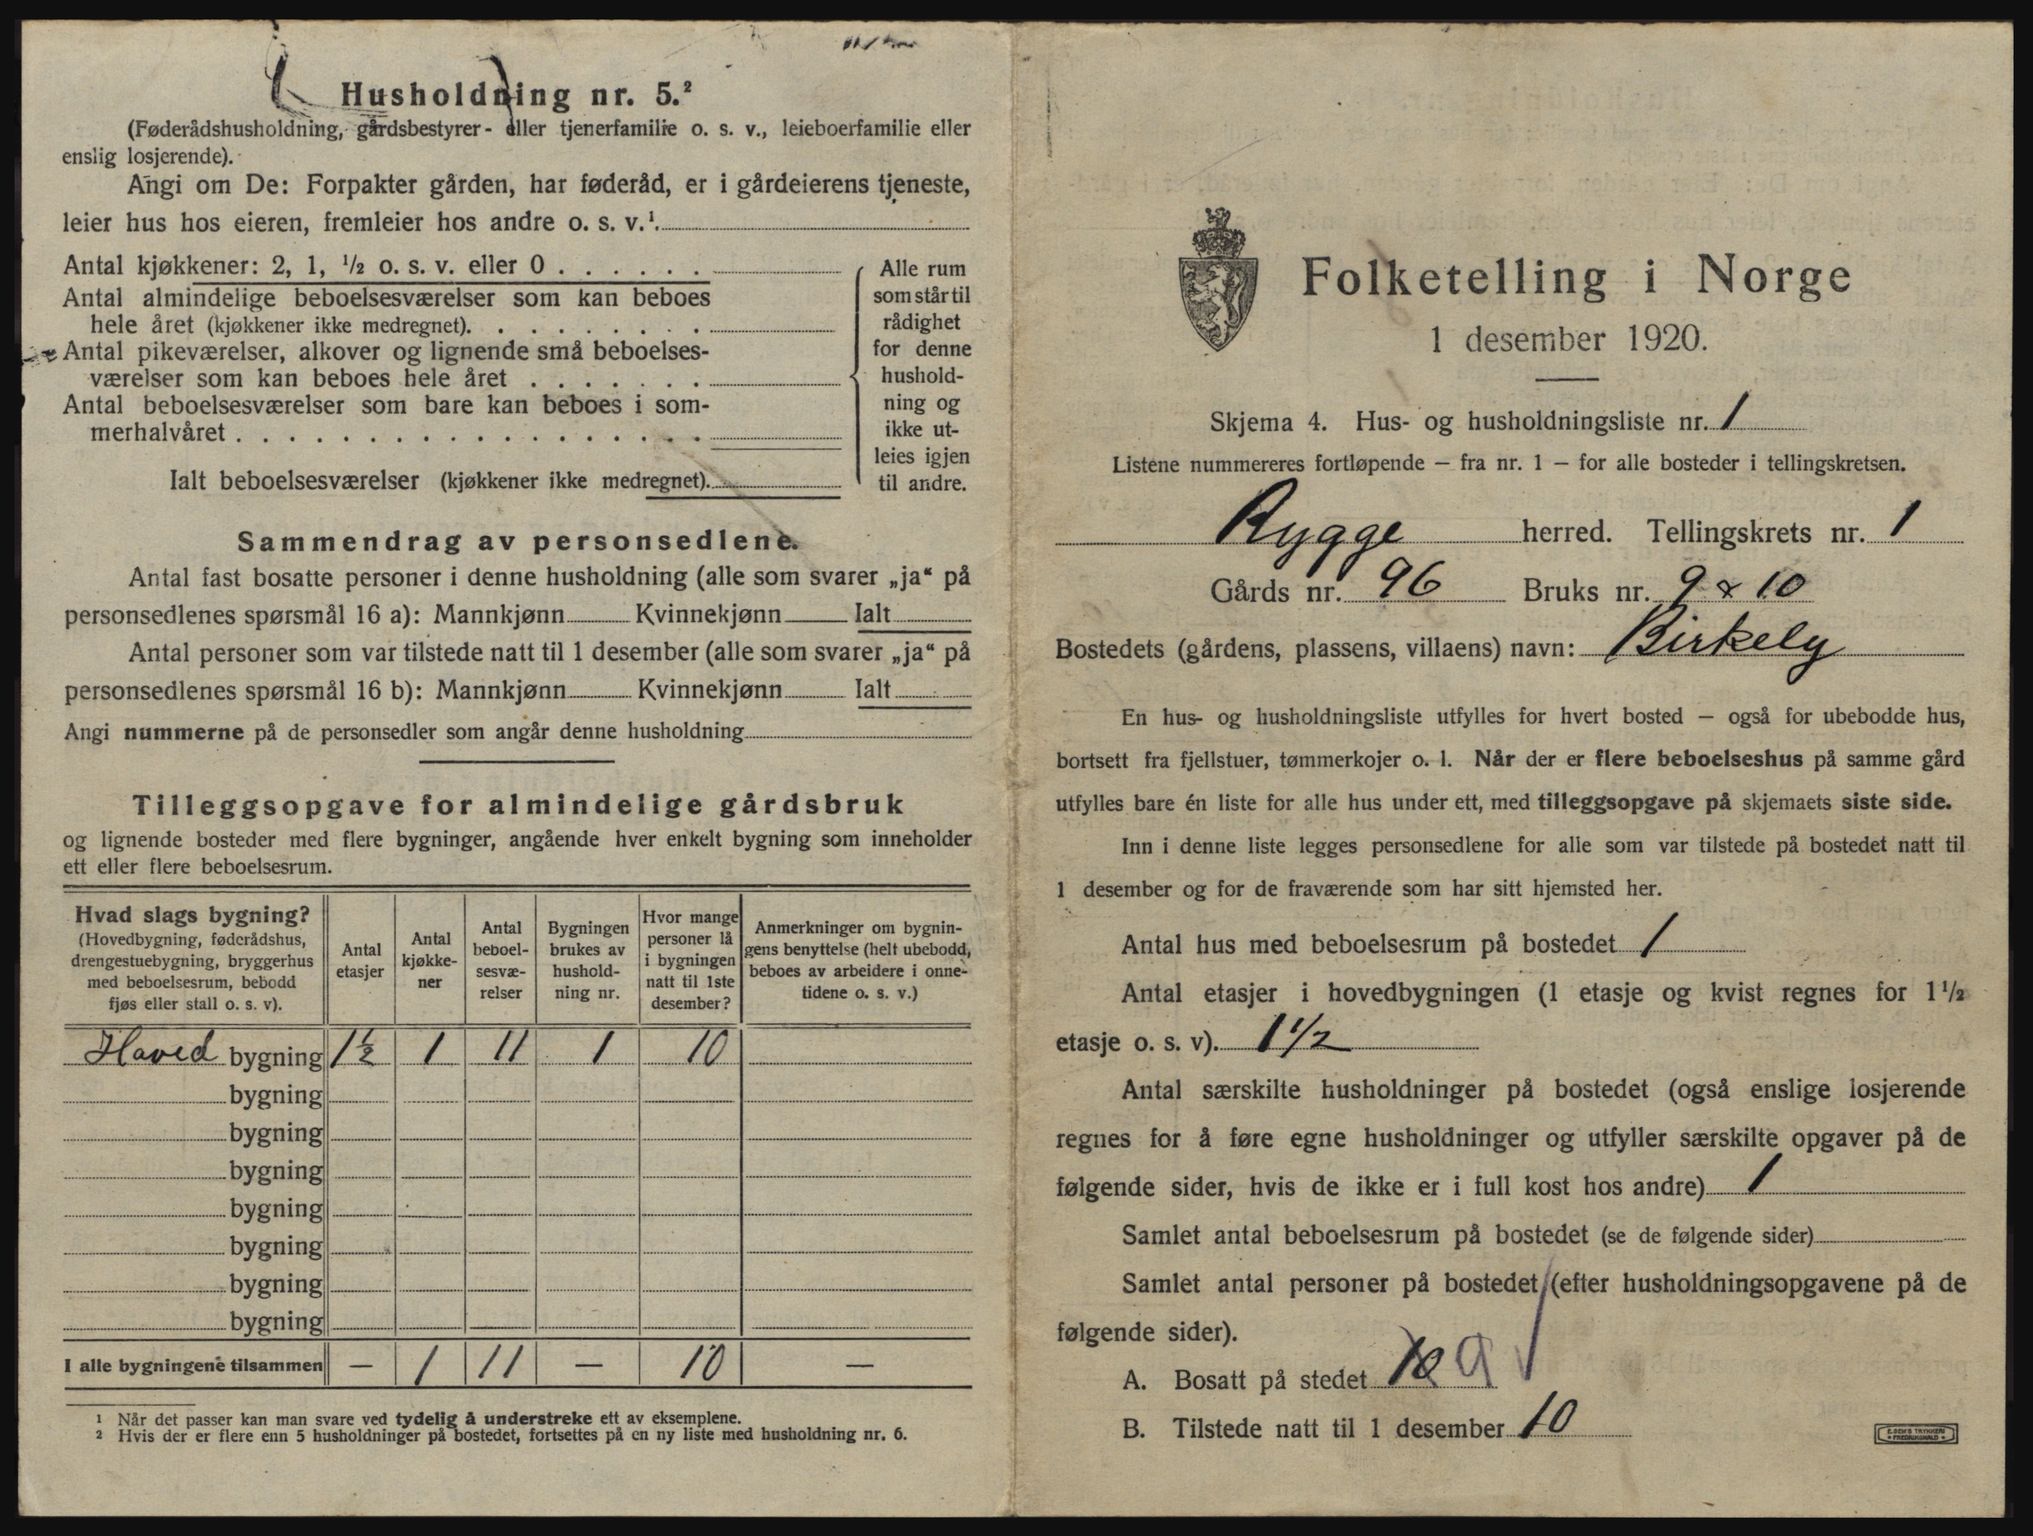 Husholdning nr. 5.²
(Føderådshusholdning, gårdsbestyrer- eller tjenerfamilie o. s. v., leieboerfamilie eller
enslig losjerende).
Angi om De: Forpakter gården, har føderåd, er i gårdeierens tjeneste,
leier hus hos eieren, fremleier hos andre o. s. v.¹.
Antal kjøkkener: 2, 1, ½ o. s. v. eller 0 . . . . . .
Antal almindelige beboelsesværelser som kan beboes
hele året (kjøkkener ikke medregnet). . . . . . . . .
Antal pikeværelser, alkover og lignende små beboelses-
værelser som kan beboes hele året . . . . . . .
Antal beboelsesværelser som bare kan beboes i som-
merhalvåret . . . . . . . . . . . . . . . . . .
Ialt beboelsesværelser (kjøkkener ikke medregnet).
Alle rum
som står til
rådighet
for denne
hushold-
ning og
ikke ut-
leies igjen
til andre.
Sammendrag av personsedlene.
Antal fast bosatte personer i denne husholdning (alle som svarer „ja“ på
personsedlenes spørsmål 16 a): Mannkjønn Kvinnekjønn Ialt
Antal personer som var tilstede natt til 1 desember (alle som svarer „ja“ på
personsedlenes spørsmål 16 b): Mannkjønn Kvinnekjønn Ialt
Angi nummerne på de personsedler som angår denne husholdning
Tilleggsopgave for almindelige gårdsbruk
og lignende bosteder med flere bygninger, angående hver enkelt bygning som inneholder
ett eller flere beboelsesrum.
Hvad slags bygning?
(Hovedbygning, føderådshus,
drengestuebygning, bryggerhus
med beboelsesrum, bebodd
fjøs eller stall o. s. v).
Antal
etasjer
Antal
kjøkke-
ner
Antal
beboel-
sesvæ-
relser
Bygningen
brukes av
hushold-
ning nr.
Hvor mange
personer lå
i bygningen
natt til 1ste
desember?
Anmerkninger om bygnin-
gens benyttelse (helt ubebodd,
beboes av arbeidere i onne-
tidene o. s. v.)
Hoved bygning 1½ 1 11 1 10
bygning
bygning
bygning
bygning
bygning
bygning
bygning
I alle bygningene tilsammen — 1 11 — 10 —
¹ Når det passer kan man svare ved tydelig å understreke ett av eksemplene.
² Hvis der er flere enn 5 husholdninger på bostedet, fortsettes på en ny liste med husholdning nr. 6.
Folketelling i Norge
1 desember 1920.
Skjema 4. Hus- og husholdningsliste nr. 1
Listene nummereres fortløpende — fra nr. 1 — for alle bosteder i tellingskretsen.
Rygge herred. Tellingskrets nr. 1
Gårds nr. 96 Bruks nr. 9 & 10
Bostedets (gårdens, plassens, villaens) navn: Birkely
En hus- og husholdningsliste utfylles for hvert bosted — også for ubebodde hus,
bortsett fra fjellstuer, tømmerkojer o. l. Når der er flere beboelseshus på samme gård
utfylles bare én liste for alle hus under ett, med tilleggsopgave på skjemaets siste side.
Inn i denne liste legges personsedlene for alle som var tilstede på bostedet natt til
1 desember og for de fraværende som har sitt hjemsted her.
Antal hus med beboelsesrum på bostedet 1
Antal etasjer i hovedbygningen (1 etasje og kvist regnes for 1½
etasje o. s. v). 1½
Antal særskilte husholdninger på bostedet (også enslige losjerende
regnes for å føre egne husholdninger og utfyller særskilte opgaver på de
følgende sider, hvis de ikke er i full kost hos andre) 1
Samlet antal beboelsesrum på bostedet (se de følgende sider)
Samlet antal personer på bostedet (efter husholdningsopgavene på de
følgende sider).
A. Bosatt på stedet 10 9
B. Tilstede natt til 1 desember 10
E. SEM'S TRYKKERI
FREDRIKSHALD